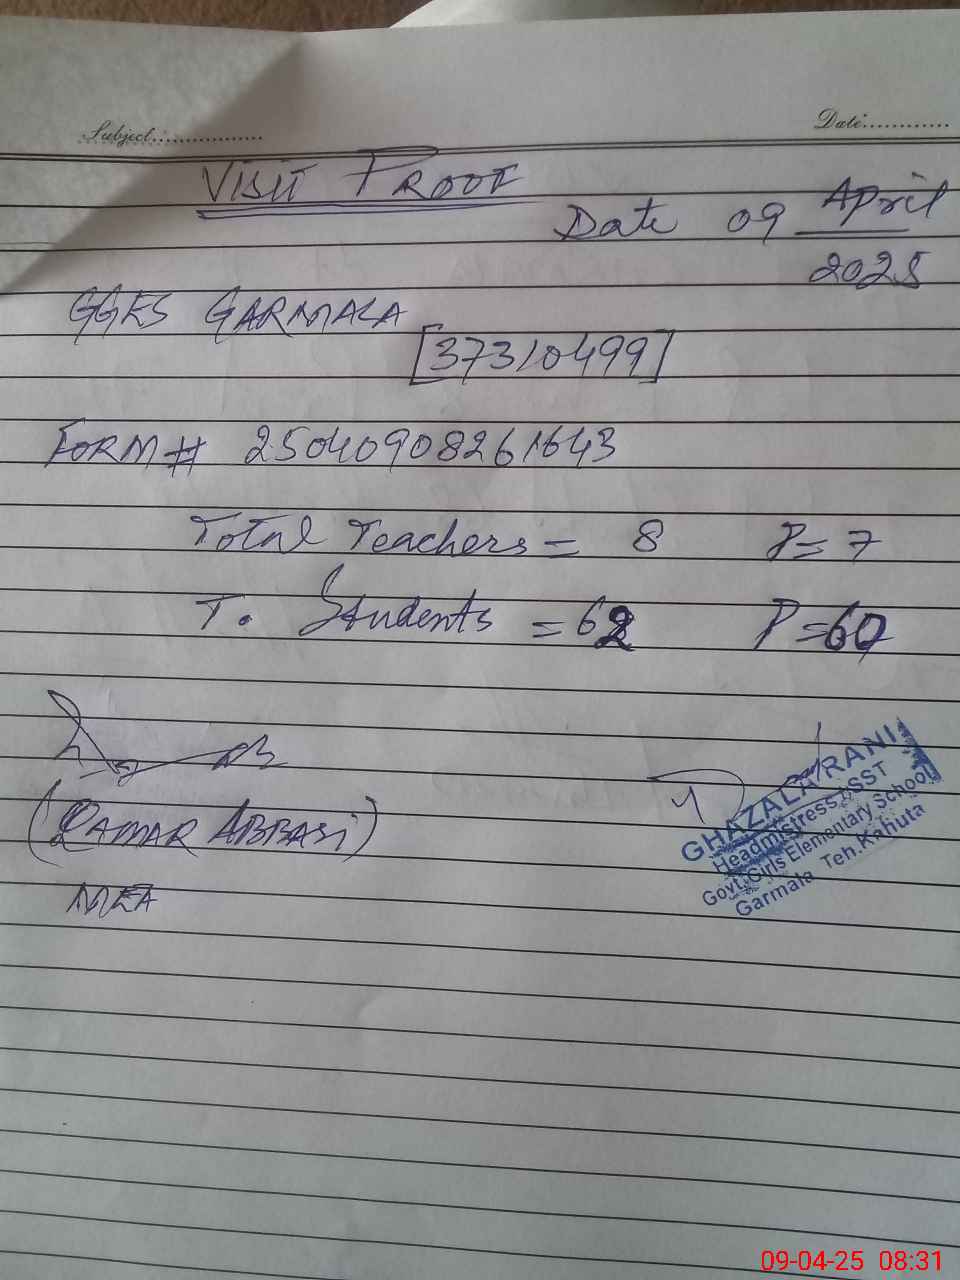 Subject................
Date:............
VISIT PROOF
Date 09 April
2025
GGES GARMALA
[37310499]
FORM# 25040908261643
Total Teachers = 8 P= 7
T. Students = 62 P=60
(QAMAR ABBASi)
MEA
GHAZALA RANI
Headmistress / SST
Govt. Girls Elementary School
Garmala Teh. Kahuta
09-04-25 08:31